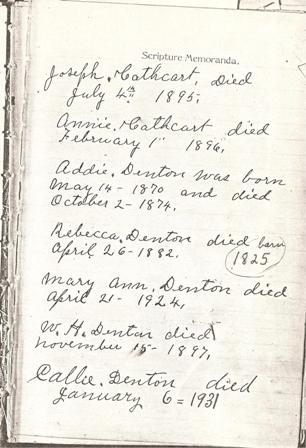 Scripture Memoranda.
Joseph. Cathcart, Died
July 4th 1895,
Annie. Cathcart died
February 1" 1896,
Addie. Denton was born
May 14 - 1870 and died
October 2 - 1874.
Rebecca. Denton died born
April 26 - 1882. 1825
Mary Ann. Denton died
April 21 - 1924,
W. H. Denton died
november 15 - 1897,
Callie. Denton died
January 6 = 1931